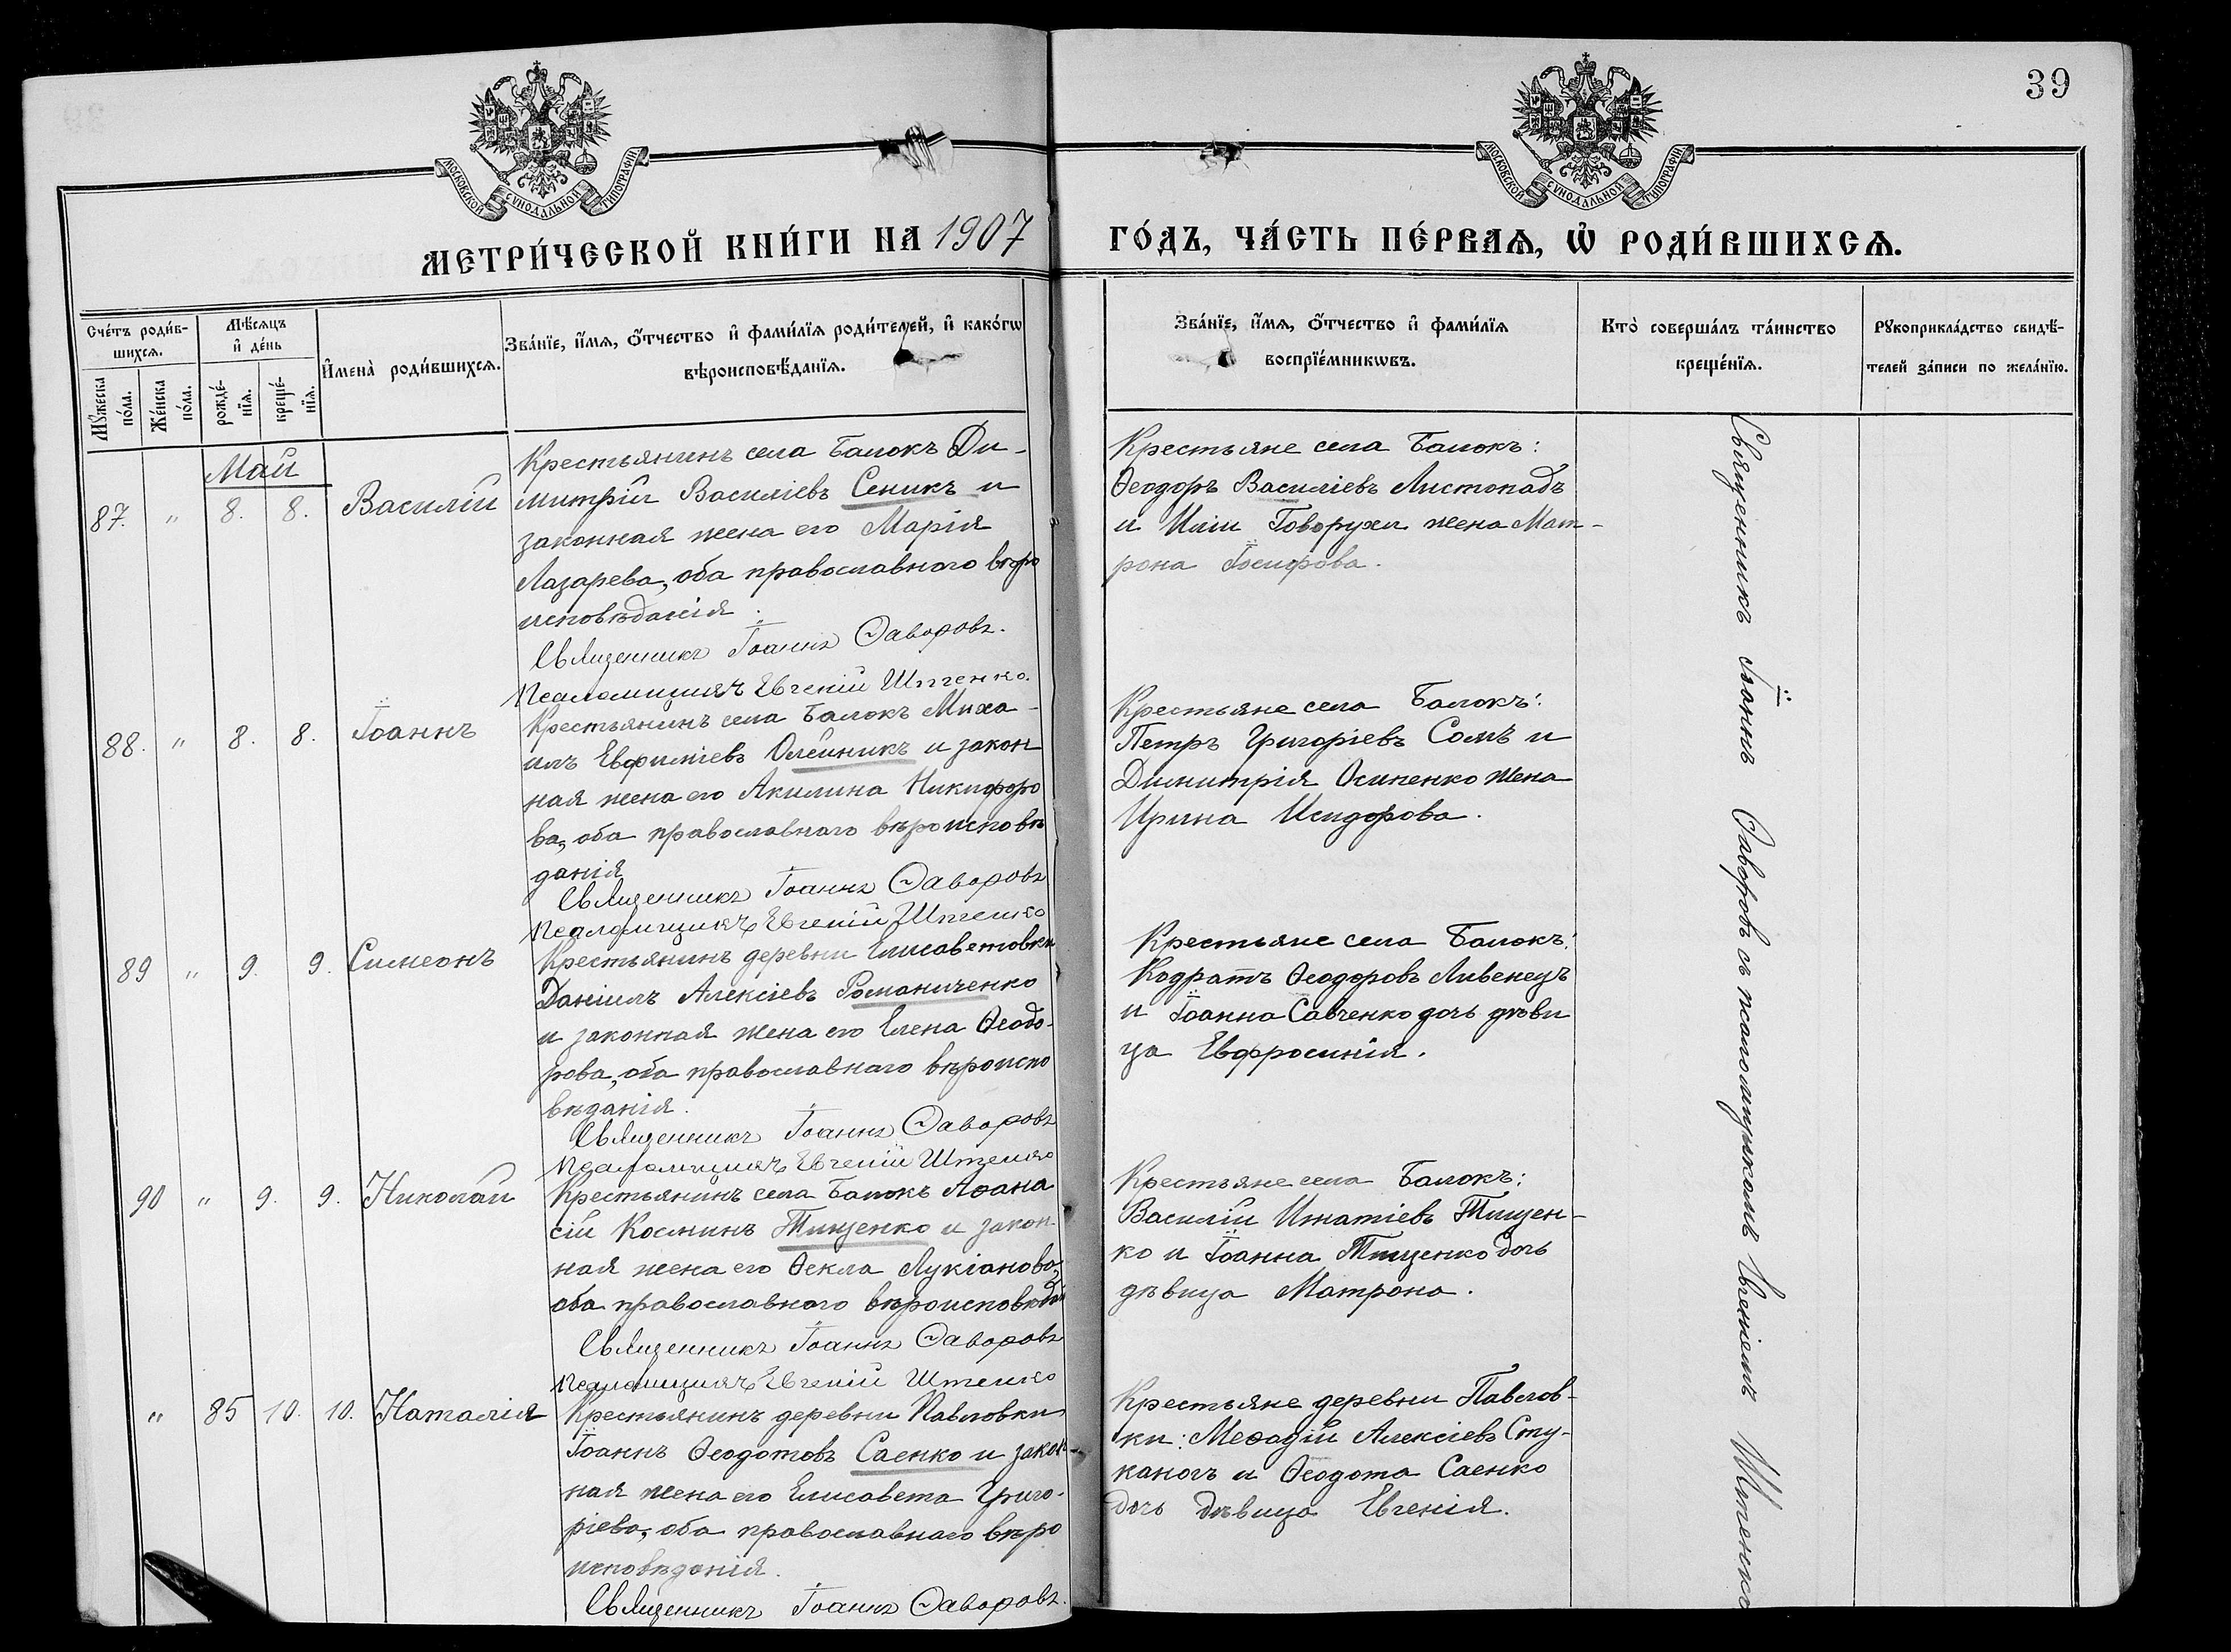 39
МОСКОВСКОЙ СУНОДАЛЬНОЙ ТИПОГРАФІИ
МОСКОВСКОЙ СУНОДАЛЬНОЙ ТИПОГРАФІИ
МЕТРИ́ЧЕСКОЙ КНИ́ГИ НА 1907 ГО́ДЪ, ЧА́СТЬ ПЕ́РВАѦ, Ѡ҆ РОДИ́ВШИХСѦ.
Сче́тъ роди́в-
шихсѧ.
Мꙋ́жеска
по́ла.
Же́нска
по́ла.
Мѣ́сѧцъ
и҆ де́нь
рожде́-
нїѧ.
креще́-
нїѧ.
И҆мена̀ роди́вшихсѧ.
Зва́нїе, и҆́мѧ, ѻ҆́тчество и҆ фами́лїѧ роди́телей, и҆ како́гѡ
вѣроисповѣ́данїѧ.
Зва́нїе, и҆́мѧ, ѻ҆́тчество и҆ фами́лїѧ
воспрїе́мникѡвъ.
Кто̀ соверша́лъ та́инство
креще́нїѧ.
Рꙋкоприкла́дство свидѣ́-
телей за́писи по жела́нїю.
Май
87. " 8. 8. Василій
Крестьянинъ села Балокъ Ди-
митрій Василіевъ Сеникъ и
законная жена его Марія
Лазарева, оба православнаго вѣро
исповѣданія.
Священникъ Іоаннъ Ѳаворовъ.
Псаломщикъ Евгеній Штенко.
Крестьяне села Балокъ:
Ѳеодоръ Василіевъ Листопадъ
и Иліи Говорухи жена Мат-
рона Іосифова.
88. " 8. 8. Іоаннъ
Крестьянинъ села Балокъ Миха-
илъ Евфиміевъ Олейникъ и закон
ная жена его Акилина Никифоро
ва, оба православнаго вѣроисповѣ
данія
Священникъ Іоаннъ Ѳаворовъ
Псаломщикъ Евгеній Штенко
Крестьяне села Балокъ:
Петръ Григоріевъ Сомъ и
Димитрія Осипенко жена
Ирина Исидорова.
89 " 9. 9. Симеонъ
Крестьянинъ деревни Елисаветовки
Даніилъ Алексіевъ Романиченко
и законная жена его Елена Ѳеодо-
рова, оба православнаго вѣроиспо
вѣданія.
Священникъ Іоаннъ Ѳаворовъ
Псаломщикъ Евгеній Штенко
Крестьяне села Балокъ:
Кодратъ Ѳеодоровъ Ливенецъ
и Іоанна Савченко дочь дѣви
ца Евфросинія.
90 " 9. 9. Николай
Крестьянинъ села Балокъ Аѳана
сій Косминъ Тищенко и закон-
ная жена его Ѳекла Лукіанова,
оба православнаго вѣроисповѣд
Священникъ Іоаннъ Ѳаворовъ
Псаломщикъ Евгеній Штенко
Крестьяне села Балокъ:
Василій Игнатіевъ Тищен-
ко и Іоанна Тищенко дочь
дѣвица Матрона.
" 85 10. 10. Наталія
Крестьянинъ деревни Павловки
Іоаннъ Ѳеодотовъ Саенко и закон-
ная жена его Елисавета Григо-
ріева, оба православнаго вѣро
исповѣданія.
Священникъ Іоаннъ Ѳаворовъ.
Крестьяне деревни Павлов-
ки: Меѳодій Алексіевъ Сту-
каногъ и Ѳеодота Саенко
дочь дѣвица Евгенія.
Священникъ Іоаннъ Ѳаворовъ съ псаломщикомъ Евгеніемъ Штенко